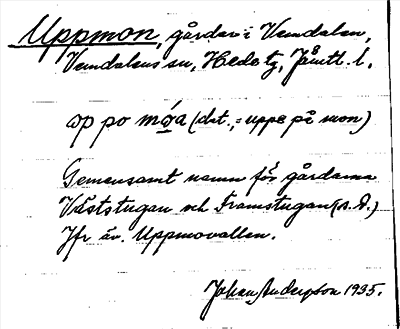 Uppmon, gårdar i Vemdalen,
Vemdalens sn, Hede tg, Jämtl. l.
op po móa (dat., = uppe på mon)
Gemensamt namn för gårdarna
Väststugan och Framstugan (s. d.)
Jfr äv. Uppmovallen.
Johan Anderson 1935.